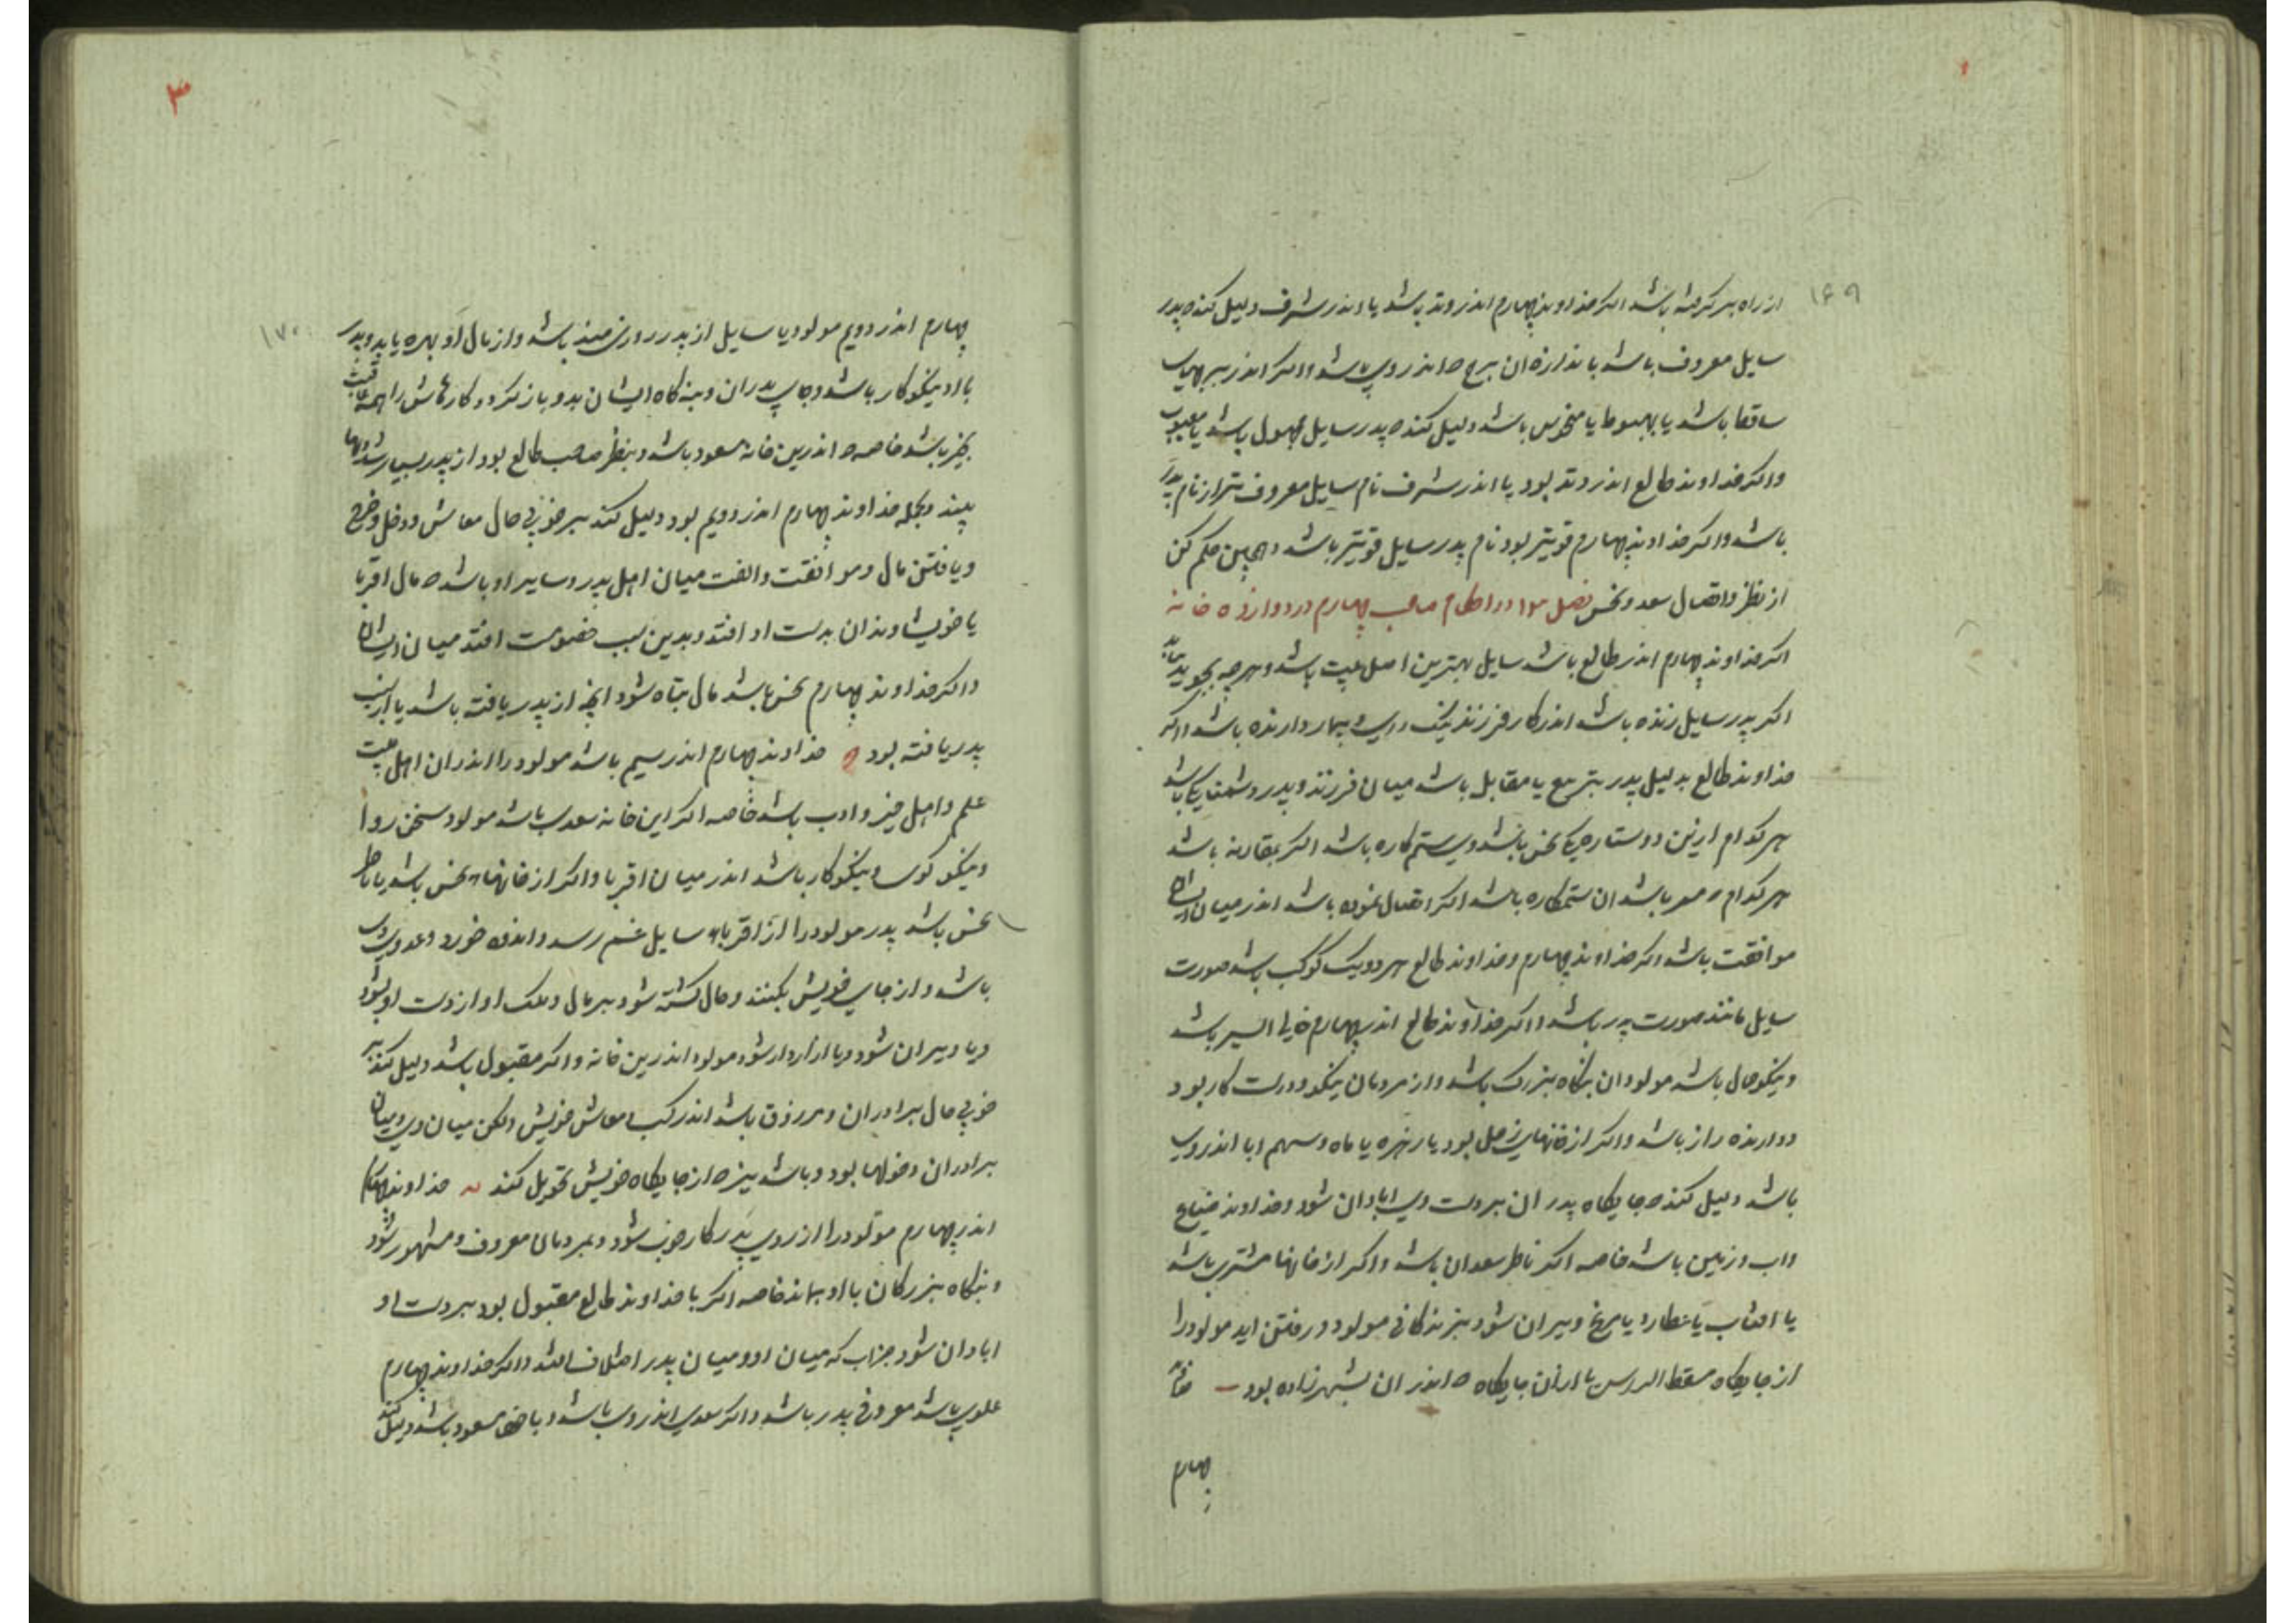 ۱۶۹
از راه بر گرفته باشد اگر خداوند چهارم اندر وتد باشد یا اندر شرف دلیل کند ه پدر
سایل معروف باشد باندازه ان برج ه اندر وی باشد و اگر اندر برجهای
ساقط باشد یا بهبوط یا منحوس باشد دلیل کند ه پدر سایل مجهول باشد یا معیوب
و اگر خداوند طالع اندر وتد بود یا اندر شرف نام سایل معروف تر از نام پدر
باشد و اگر خداوند چهارم قویتر بود نام پدر سایل قویتر باشد و همچنین حکم کن
از نظر و اتصال سعد و نحس فصل ۱۳ در احکام صاحب چهارم در دوازده خانه
اگر خداوند چهارم اندر طالع باشد سایل بهترین اهل بیت باشد و هرچه بجوید بیابد
اگر پدر سایل زنده باشد اندر کار فرزند نیک رای و تیمار دارنده باشد و اگر
خداوند طالع بدلیل پدر بتربیع یا مقابل باشد میان فرزند و پدر دشمنایکی باشد
هر کدام ازین دو ستاره که نحس باشد وی ستم کاره باشد اگر بمقارنه باشد
هر کدام باشد ان ستمکاره باشد اگر اتصال نموده باشد اندر میان ایشان
موافقت باشد اگر خداوند چهارم و خداوند طالع هر دو یک کوکب باشد صورت
سایل مانند صورت پدر باشد و اگر خداوند طالع اندر چهارم خالی السیر باشد
و نیکو حال باشد مولود ان بنگاه بزرگ باشد و از مردمان نیکو و درست کار بود
و دارنده راز باشد و اگر از خانهای زحل بود یا زهره یا ماه و سهم ابا اندر وی
باشد دلیل کند ه جایگاه پدر ان بر دست وی ابادان شود و خداوند ضیاع
و اب و زمین باشد خاصه اگر ناظر سعدان باشد و اگر از خانها مشتری باشد
یا افتاب یا عطارد یا مریخ ویران شود بزندگانی مولود و رفتن اید مولود را
از جایگاه مسقط الراس یا ازان جایگاه ه اندر ان بشهر زاده بود
چهارم
۳
۱۷۰
چهارم اندر دویم مولود یا سایل از پدر روزی مند باشد و از مال او بهره یابد و پدر
با او نیکو کار باشد و جای پدران و بنه گاه ایشان بدو باز گردد و کارهاش را همه عاقبت
بخیر باشد خاصه ه اندرین خانه مسعود باشد و بنظر صاحب طالع بود از پدر بسیار شادیها
بیند و بجمله خداوند چهارم اندر دویم بود دلیل کند بر خوبی حال معاش و دخل و خرج
و یافتن مال و موافقت و الفت میان اهل پدر و سایر او باشد ه مال اقربا
یا خویشاوندان بدست او افتد و بدین سبب خصومت افتد میان ایشان
و اگر خداوند چهارم نحس باشد مال تباه شود انچه از پدر یافته باشد یا از سبب
پدر یافته بود خداوند چهارم اندر سیم باشد مولود را اندران اهل بیت
علم و اهل خیر و ادب باشد خاصه اگر این خانه سعدی باشد مولود سخن روا
و نیکو گوی و نیکو کار باشد اندر میان اقربا و اگر از خانهاء نحس باشد یا ناظر
نحس باشد پدر مولود را از اقرباء سایل غم رسد و اندوه خورد و عدوی وی
باشد و از جای خویش بکنند و مال کشته شود بر مال و ملک او از دست او بشود
و یا ویران شود و یا ازار دار شود مولود اندرین خانه و اگر مقبول باشد دلیل کند بر
خوبی حال برادران و مرزوق باشد اندر کسب و معاش خویش ولکن میان وی و میان
برادران دخولها بود و باشد نیز ه از جایگاه خویش تحویل کند خداوند چهارم
اندر چهارم مولود را از روی پدر کار خوب شود و بمردمان معروف و مشهور شود
و بنگاه بزرگان با او بماند خاصه اگر با خداوند طالع مقبول بود بر دست او
ابادان شود جزاب که میان او و میان پدر اختلاف افتد و اگر خداوند چهارم
علوی باشد معروفی پدر باشد و اگر سعدی اندر وی باشد و یا مسعود باشد دلیل کند